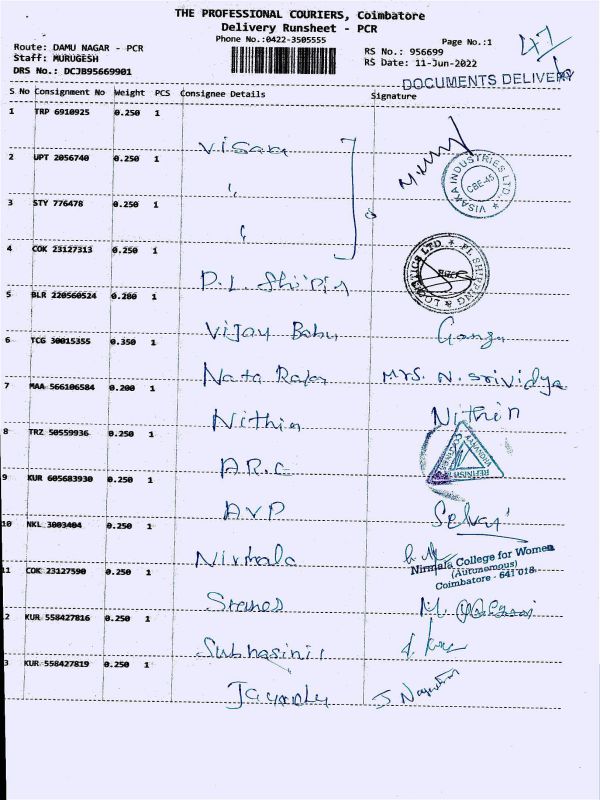 THE PROFESSIONAL COURIERS, Coimbatore
Delivery Runsheet - PCR
Phone No.:0422-3505555
Page No.:1
47
Route: DAMU NAGAR - PCR
Staff: MURUGESH
DRS No.: DCJB95669901
RS No.: 956699
RS Date: 11-Jun-2022
DOCUMENTS DELIVERY
S No Consignment No Weight PCS Consignee Details Signature
1 TRP 6910925 0.250 1
Visaka
VISAKA INDUSTRIES LTD. CBE-45
2 UPT 2056740 0.250 1
"
3 STY 776478 0.250 1
"
4 COK 23127313 0.250 1
P.L. Shipin
PL SHIPPING & LOGISTICS LTD.
5 BLR 220560524 0.280 1
Vijay Babu Ganga
6 TCG 30015355 0.350 1
Nata Rajan Mrs. N. Srividya
7 MAA 566106584 0.200 1
Nithin Nithin
8 TRZ 50559936 0.250 1
A.R.C
9 KUR 605683930 0.250 1
AVP Selvi
10 NKL 3003404 0.250 1
Nirmala
Nirmala College for Women
(Autonomous)
Coimbatore - 641 018.
11 COK 23127590 0.250 1
Stanes M.
12 KUR 558427816 0.250 1
Subhasini
13 KUR 558427819 0.250 1